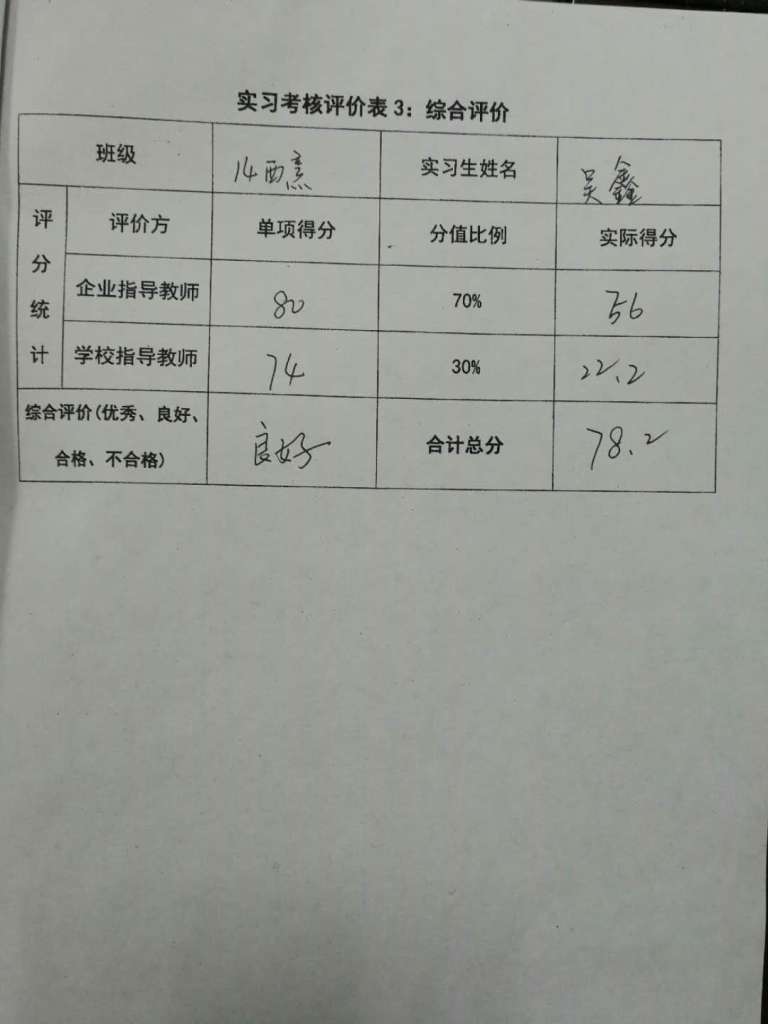 实习考核评价表 3：综合评价
班级 14西烹 实习生姓名 吴鑫
评分统计 评价方 单项得分 分值比例 实际得分
企业指导教师 80 70% 56
学校指导教师 74 30% 22.2
综合评价(优秀、良好、
合格、不合格) 良好 合计总分 78.2